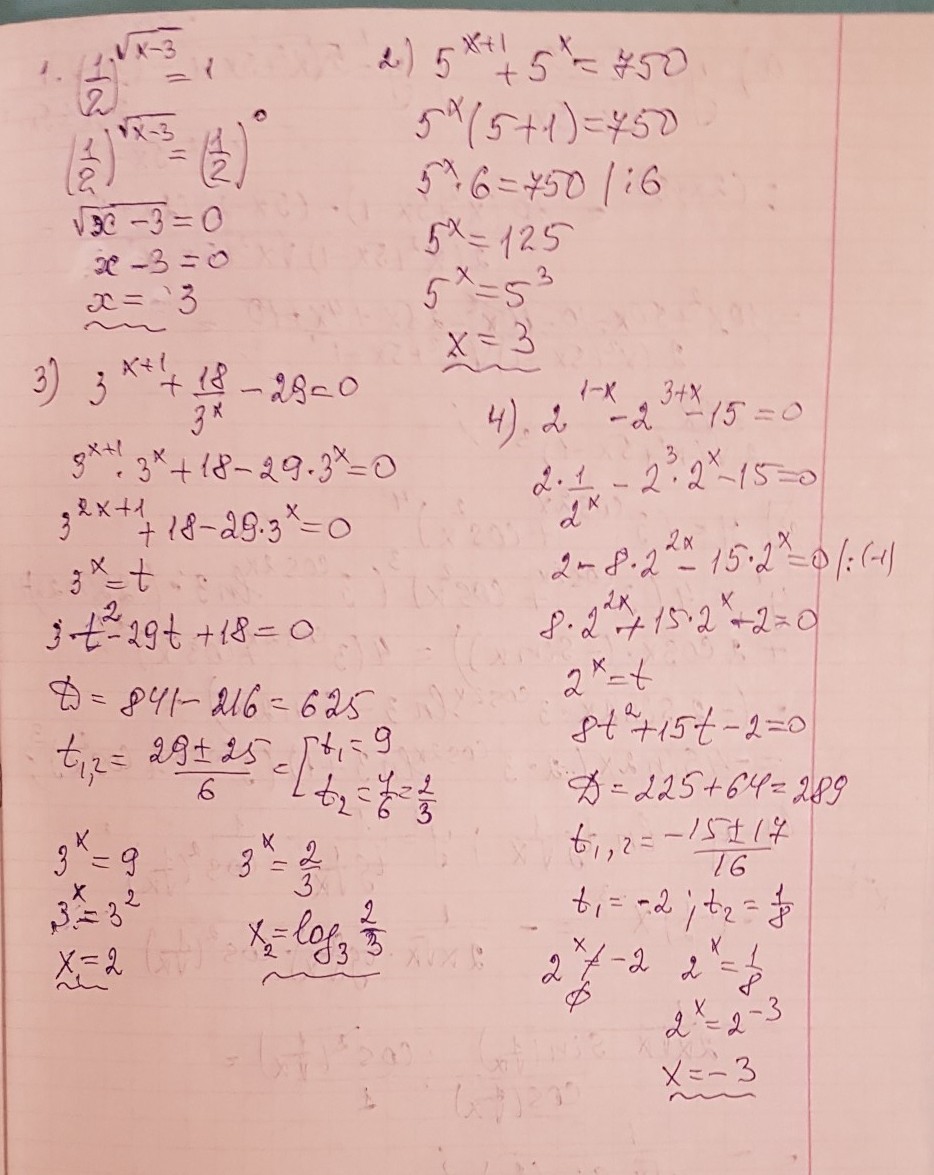 1. (1/2)^√(x-3) = 1
(1/2)^√(x-3) = (1/2)^0
√(x-3) = 0
x - 3 = 0
x = 3
2) 5^(x+1) + 5^x = 750
5^x (5+1) = 750
5^x · 6 = 750 / :6
5^x = 125
5^x = 5^3
x = 3
3) 3^(x+1) + 18/3^x - 29 = 0
3^(x+1) · 3^x + 18 - 29 · 3^x = 0
3^(2x+1) + 18 - 29 · 3^x = 0
3^x = t
3·t^2 - 29t + 18 = 0
D = 841 - 216 = 625
t_1,2 = (29 ± 25)/6 = [ t_1 = 9
t_2 = 4/6 = 2/3
3^x = 9 3^x = 2/3
3^x = 3^2
x_1 = 2 x_2 = log_3 2/3
4). 2^(1-x) - 2^(3+x) - 15 = 0
2 · 1/2^x - 2^3 · 2^x - 15 = 0
2 - 8 · 2^(2x) - 15 · 2^x = 0 / :(-1)
8 · 2^(2x) + 15 · 2^x - 2 = 0
2^x = t
8t^2 + 15t - 2 = 0
D = 225 + 64 = 289
t_1,2 = (-15 ± 17)/16
t_1 = -2 ; t_2 = 1/8
2^x ≠ -2 2^x = 1/8
∅
2^x = 2^-3
x = -3